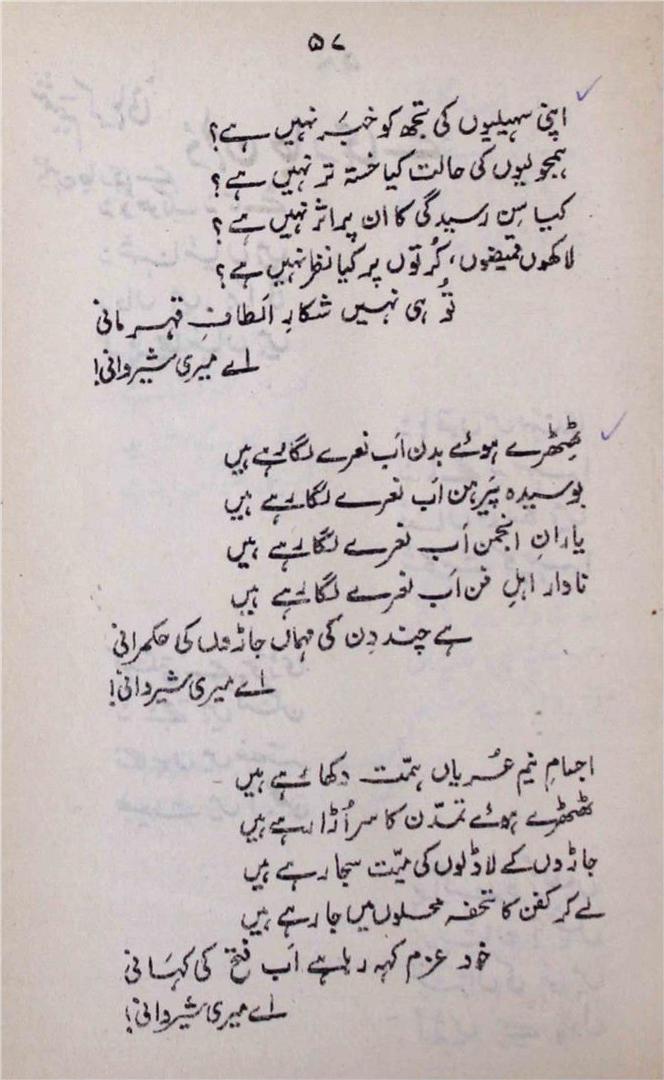 ۵۷
اپنی سہیلیوں کی تجھ کو خبَر نہیں ہے؟
ہمجولیوں کی حالت کیا خستہ تر نہیں ہے؟
کیا سِن رسیدگی کا ان پر اثر نہیں ہے؟
لاکھوں قمیضوں، کُرتوں پر کیا نظر نہیں ہے؟
تُو ہی نہیں شکارِ الطافِ قہرمانی
اے میری شیروانی!
ٹھِٹھرے ہوئے بدن اَب نعرے لگا رہے ہیں
بوسیدہ پَیرہن اَب نعرے لگا رہے ہیں
یارانِ انجمن اَب نعرے لگا رہے ہیں
نادار اہلِ فن اَب نعرے لگا رہے ہیں
ہے چند دِن کی مہماں جاڑوں کی حکمرانی
اے میری شیروانی!
اجسامِ نیم عُریاں ہمّت دکھا رہے ہیں
ٹھٹھرے ہوئے تمدّن کا سر اُڑا رہے ہیں
جاڑوں کے لاڈلوں کی میّت سجا رہے ہیں
لے کر کفن کا تحفہ محلوں میں جا رہے ہیں
خود عزم کہہ رہا ہے اَب فتح کی کہَانی
اے میری شیروانی!